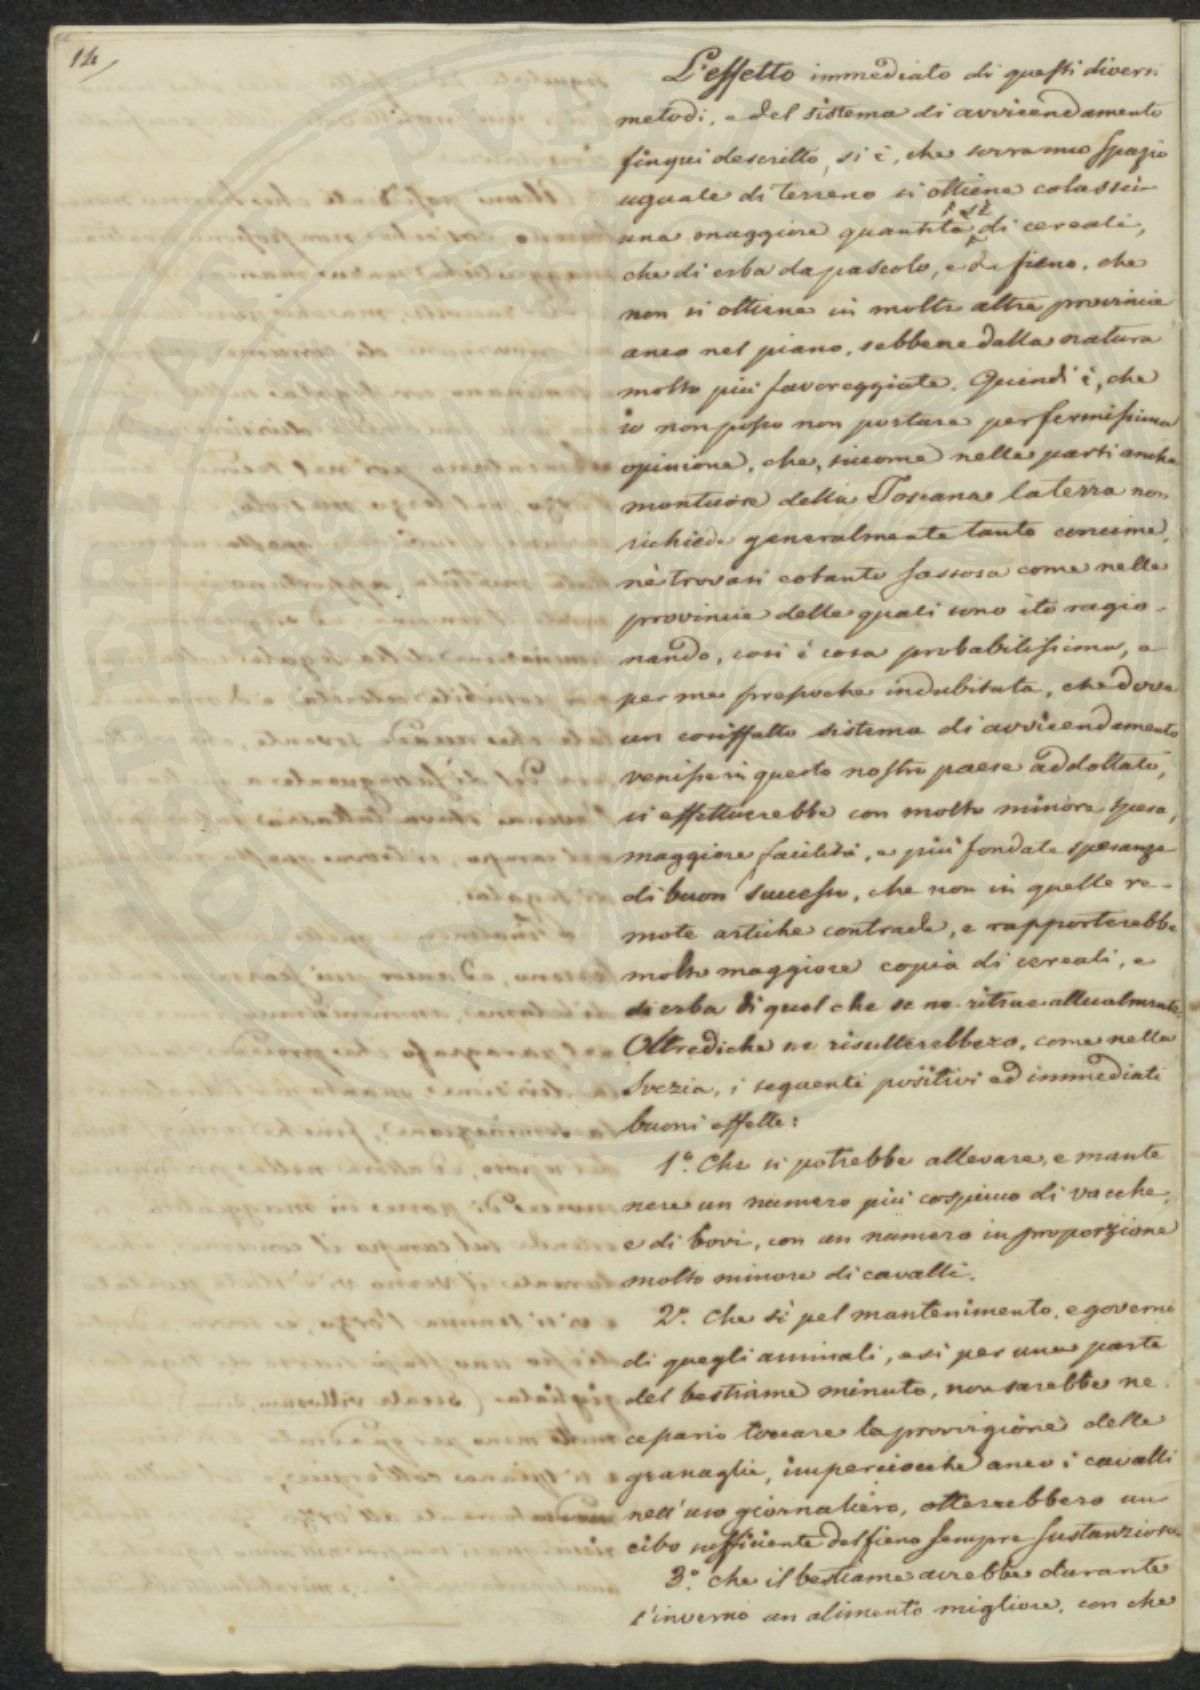 14
L'effetto immediato di questi diversi
metodi, e del sistema di avvicendamento
finqui descritto, si è, che sovra uno spazio
uguale di terreno si ottiene colassù
una maggiore quantità sì di cereali,
che di erba da pascolo, e da fieno, che
non si ottiene in molte altre provincie
anco nel piano, sebbene dalla natura
molto più favoreggiate. Quindi è, che
io non posso non portare per fermissima
opinione, che, siccome nelle parti anche
montuose della Toscana la terra non
richiede generalmente tanto concime,
nè trovasi cotanto sassosa come nelle
provincie delle quali sono ito ragio-
nando, così è cosa probabilissima, e
per me pressoche indubitata, che dove
un cosiffatto sistema di avvicendamento
venisse in questo nostro paese addottato,
si effettuerebbe con molto minore spesa,
maggiore facilità, e più fondate speranze
di buon successo, che non in quelle re-
mote artiche contrade, e rapporterebbe
molto maggiore copia di cereali, e
di erba di quel che se ne ritrae attualmente.
Oltrediche ne risulterebbero, come nella
Svezia, i seguenti positivi ed immediati
buoni effetti:
1.º Che si potrebbe allevare, e mante
nere un numero più cospicuo di vacche,
e di bovi, con un numero in proporzione
molto minore di cavalli.
2.º Che sì pel mantenimento, e governo
di quegli animali, e sì per una parte
del bestiame minuto, non sarebbe ne
cessario toccare la provvigione delle
granaglie, imperciocchè anco i cavalli
nell'uso giornaliero, otterrebbero un
cibo sufficiente del fieno sempre sustanzioso
3.º che il bestiame avrebbe durante
l'inverno un alimento migliore, con che